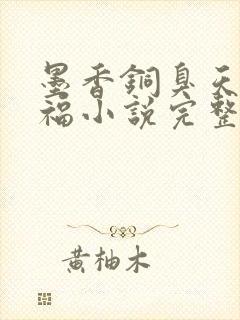 墨香銅臭天
福小說完整
黃柚木